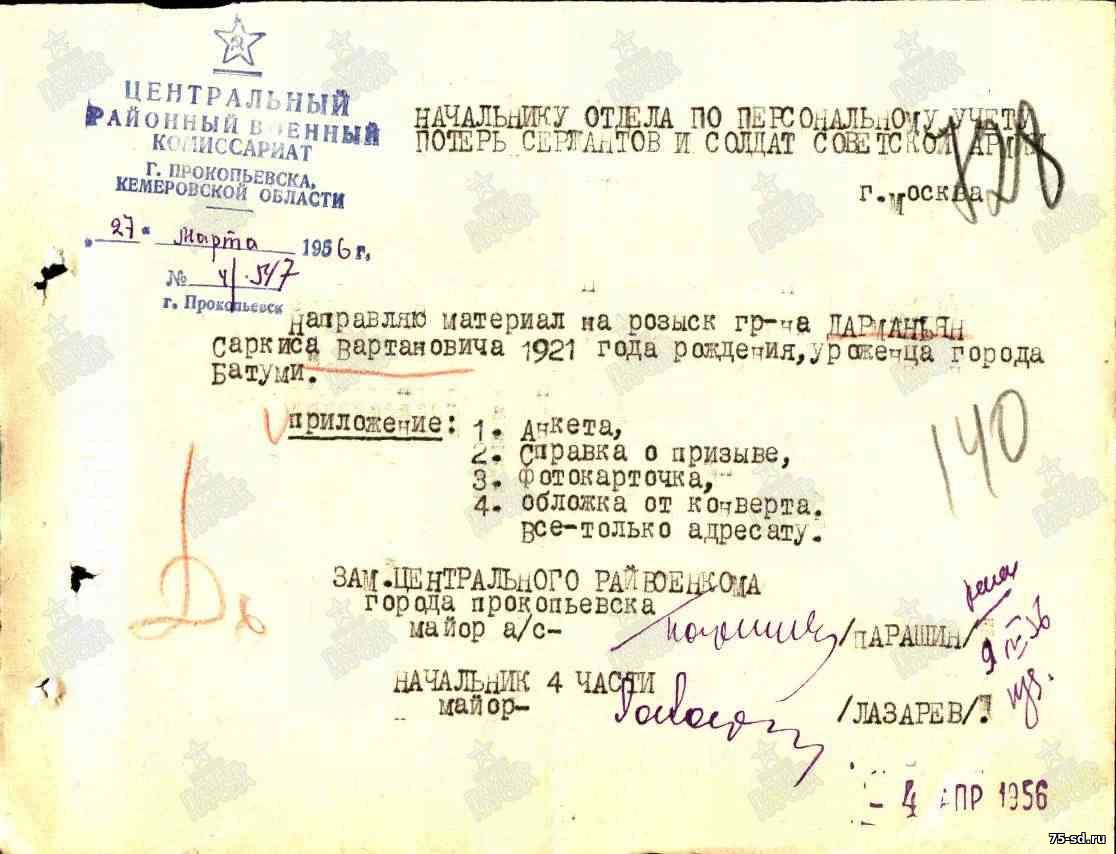 ЦЕНТРАЛЬНЫЙ
РАЙОННЫЙ ВОЕННЫЙ
КОМИССАРИАТ
Г. ПРОКОПЬЕВСКА,
КЕМЕРОВСКОЙ ОБЛАСТИ
„27" марта 1956 г.
№ 4/547
г. Прокопьевск
НАЧАЛЬНИКУ ОТДЕЛА ПО ПЕРСОНАЛЬНОМУ УЧЕТУ
ПОТЕРЬ СЕРЖАНТОВ И СОЛДАТ СОВЕТСКОЙ АРМИИ
г.москва
Направляю материал на розыск гр-на ДАРМАНЬЯН
Саркиса Вартановича 1921 года рождения,уроженца города
Батуми.
приложение: 1. Анкета,
2. Справка о призыве,
3. Фотокарточка,
4. обложка от конверта.
Все-только адресату.
140
ЗАМ.ЦЕНТРАЛЬНОГО РАЙВОЕНКОМА
города прокопьевска
майор а/с- /ПАРАШИН/
НАЧАЛЬНИК 4 ЧАСТИ
майор- /ЛАЗАРЕВ/.
- 4 АПР 1956
75-sd.ru